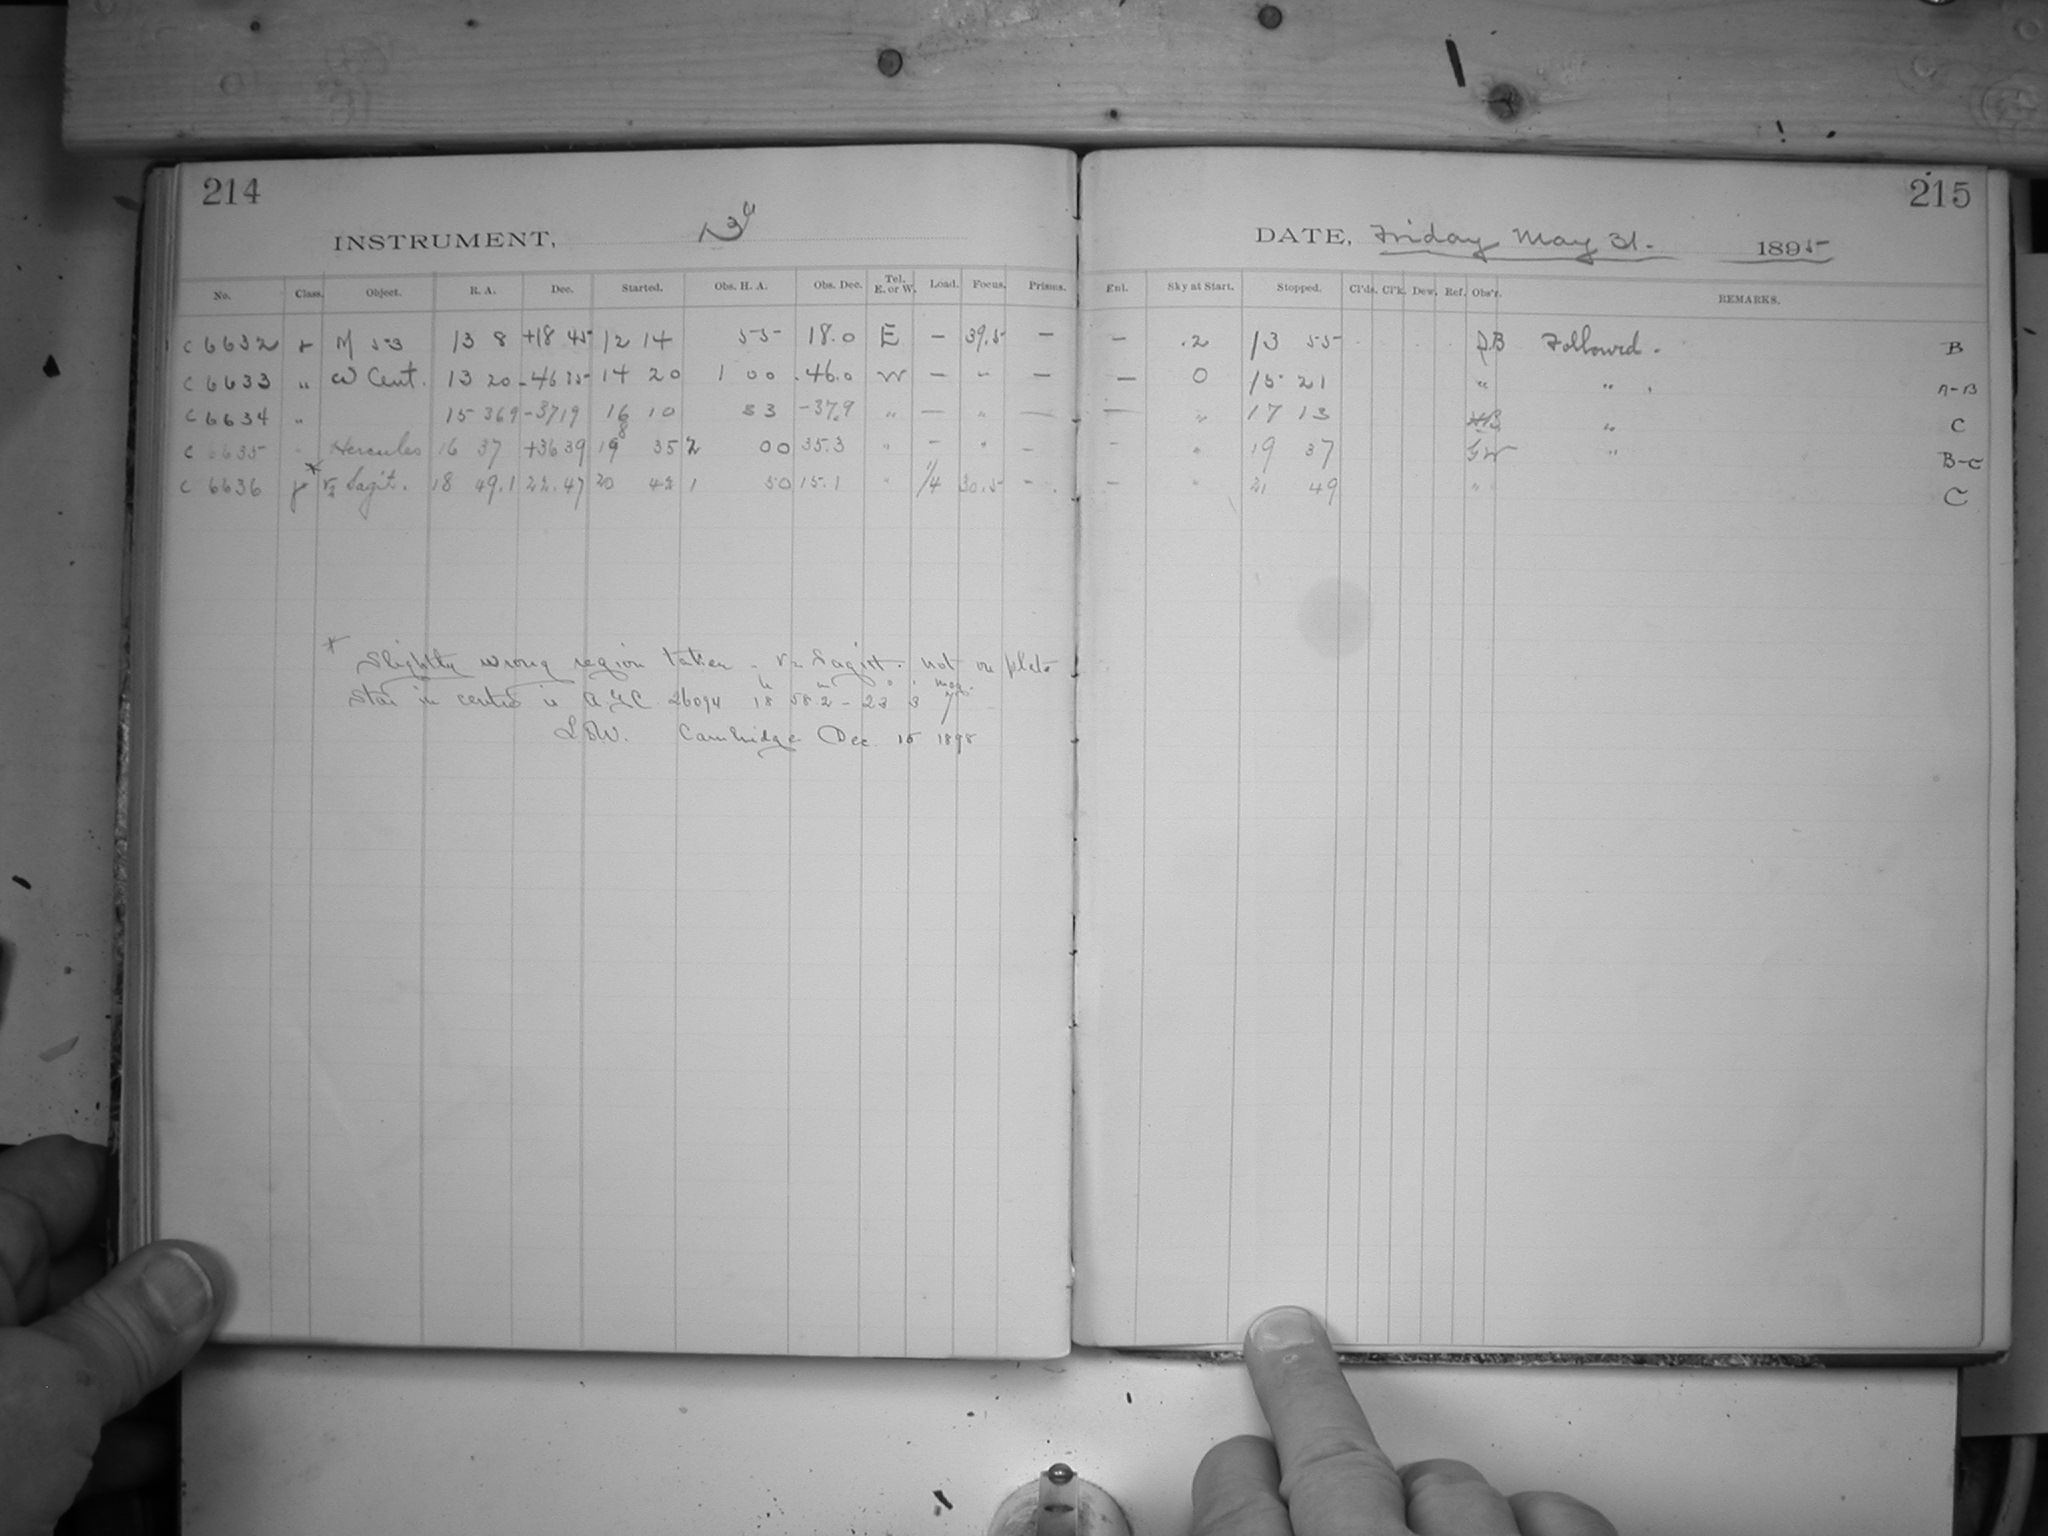 214
215
INSTRUMENT, 13"
DATE, Friday May 31. 1895
No. Class. Object. R. A. Dec. Started. Obs. H. A. Obs. Dec. Tel. E. or W. Load. Focus. Prisms. Enl. Sky at Start. Stopped. Cl'ds. Cl'k. Dew. Ref. Obs'r. REMARKS.
C 6632 M 53 13 8 +18 45 12 14 55 18.0 E — 39.5 — — .2 13 55 Followed. B
C 6633 " ω Cent. 13 20 -46 14 20 1 00 -46.0 W — " — — 0 15 21 " " A-B
C 6634 " 15 36.9 -37 19 16 10 53 -37.9 " — " — — " 17 13 " C
C 6635 " Hercules 16 37 +36 39 35 2 00 35.3 " — " — — " 19 37 GW " B-C
C 6636 * Sagit. 18 49.1 22.47 20 1 50 15.1 " 1/4 30.5 — — " 21 49 " C
* Slightly wrong region taken - Sagitt. not on plate
Star in centre is A.G.C. 26094 18h 58m.2 - 23° 3' mag. 7
Cambridge Dec. 15 1898